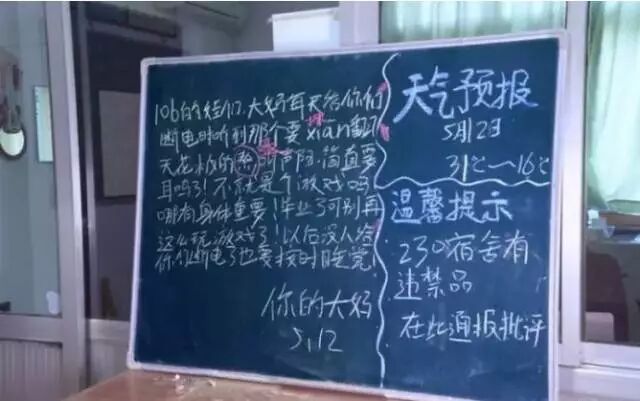 106的娃们,大妈每天给你们
断电时听到那个要xian翻
天花板的 叫声阿,简直要
耳鸣了!不就是个游戏吗
哪有身体重要!毕业了可别再
这么玩游戏了!以后没人给
你们断电了也要按时睡觉!
你的大妈
5.12
天气预报
5月12日
31℃~16℃
温馨提示
230宿舍有
违禁品
在此通报批评